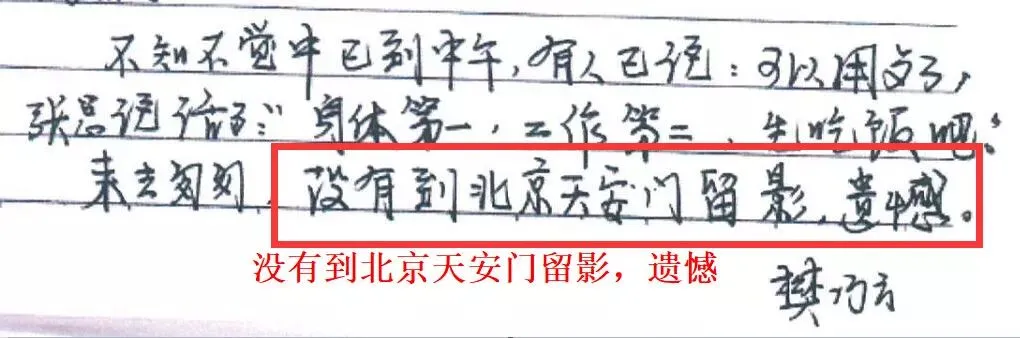 不知不觉中已到中午,有人已说:可以用了,
张总说话了:"身体第一,工作第二,先吃饭吧。"
来去匆匆,没有到北京天安门留影,遗憾。
没有到北京天安门留影，遗憾
樊